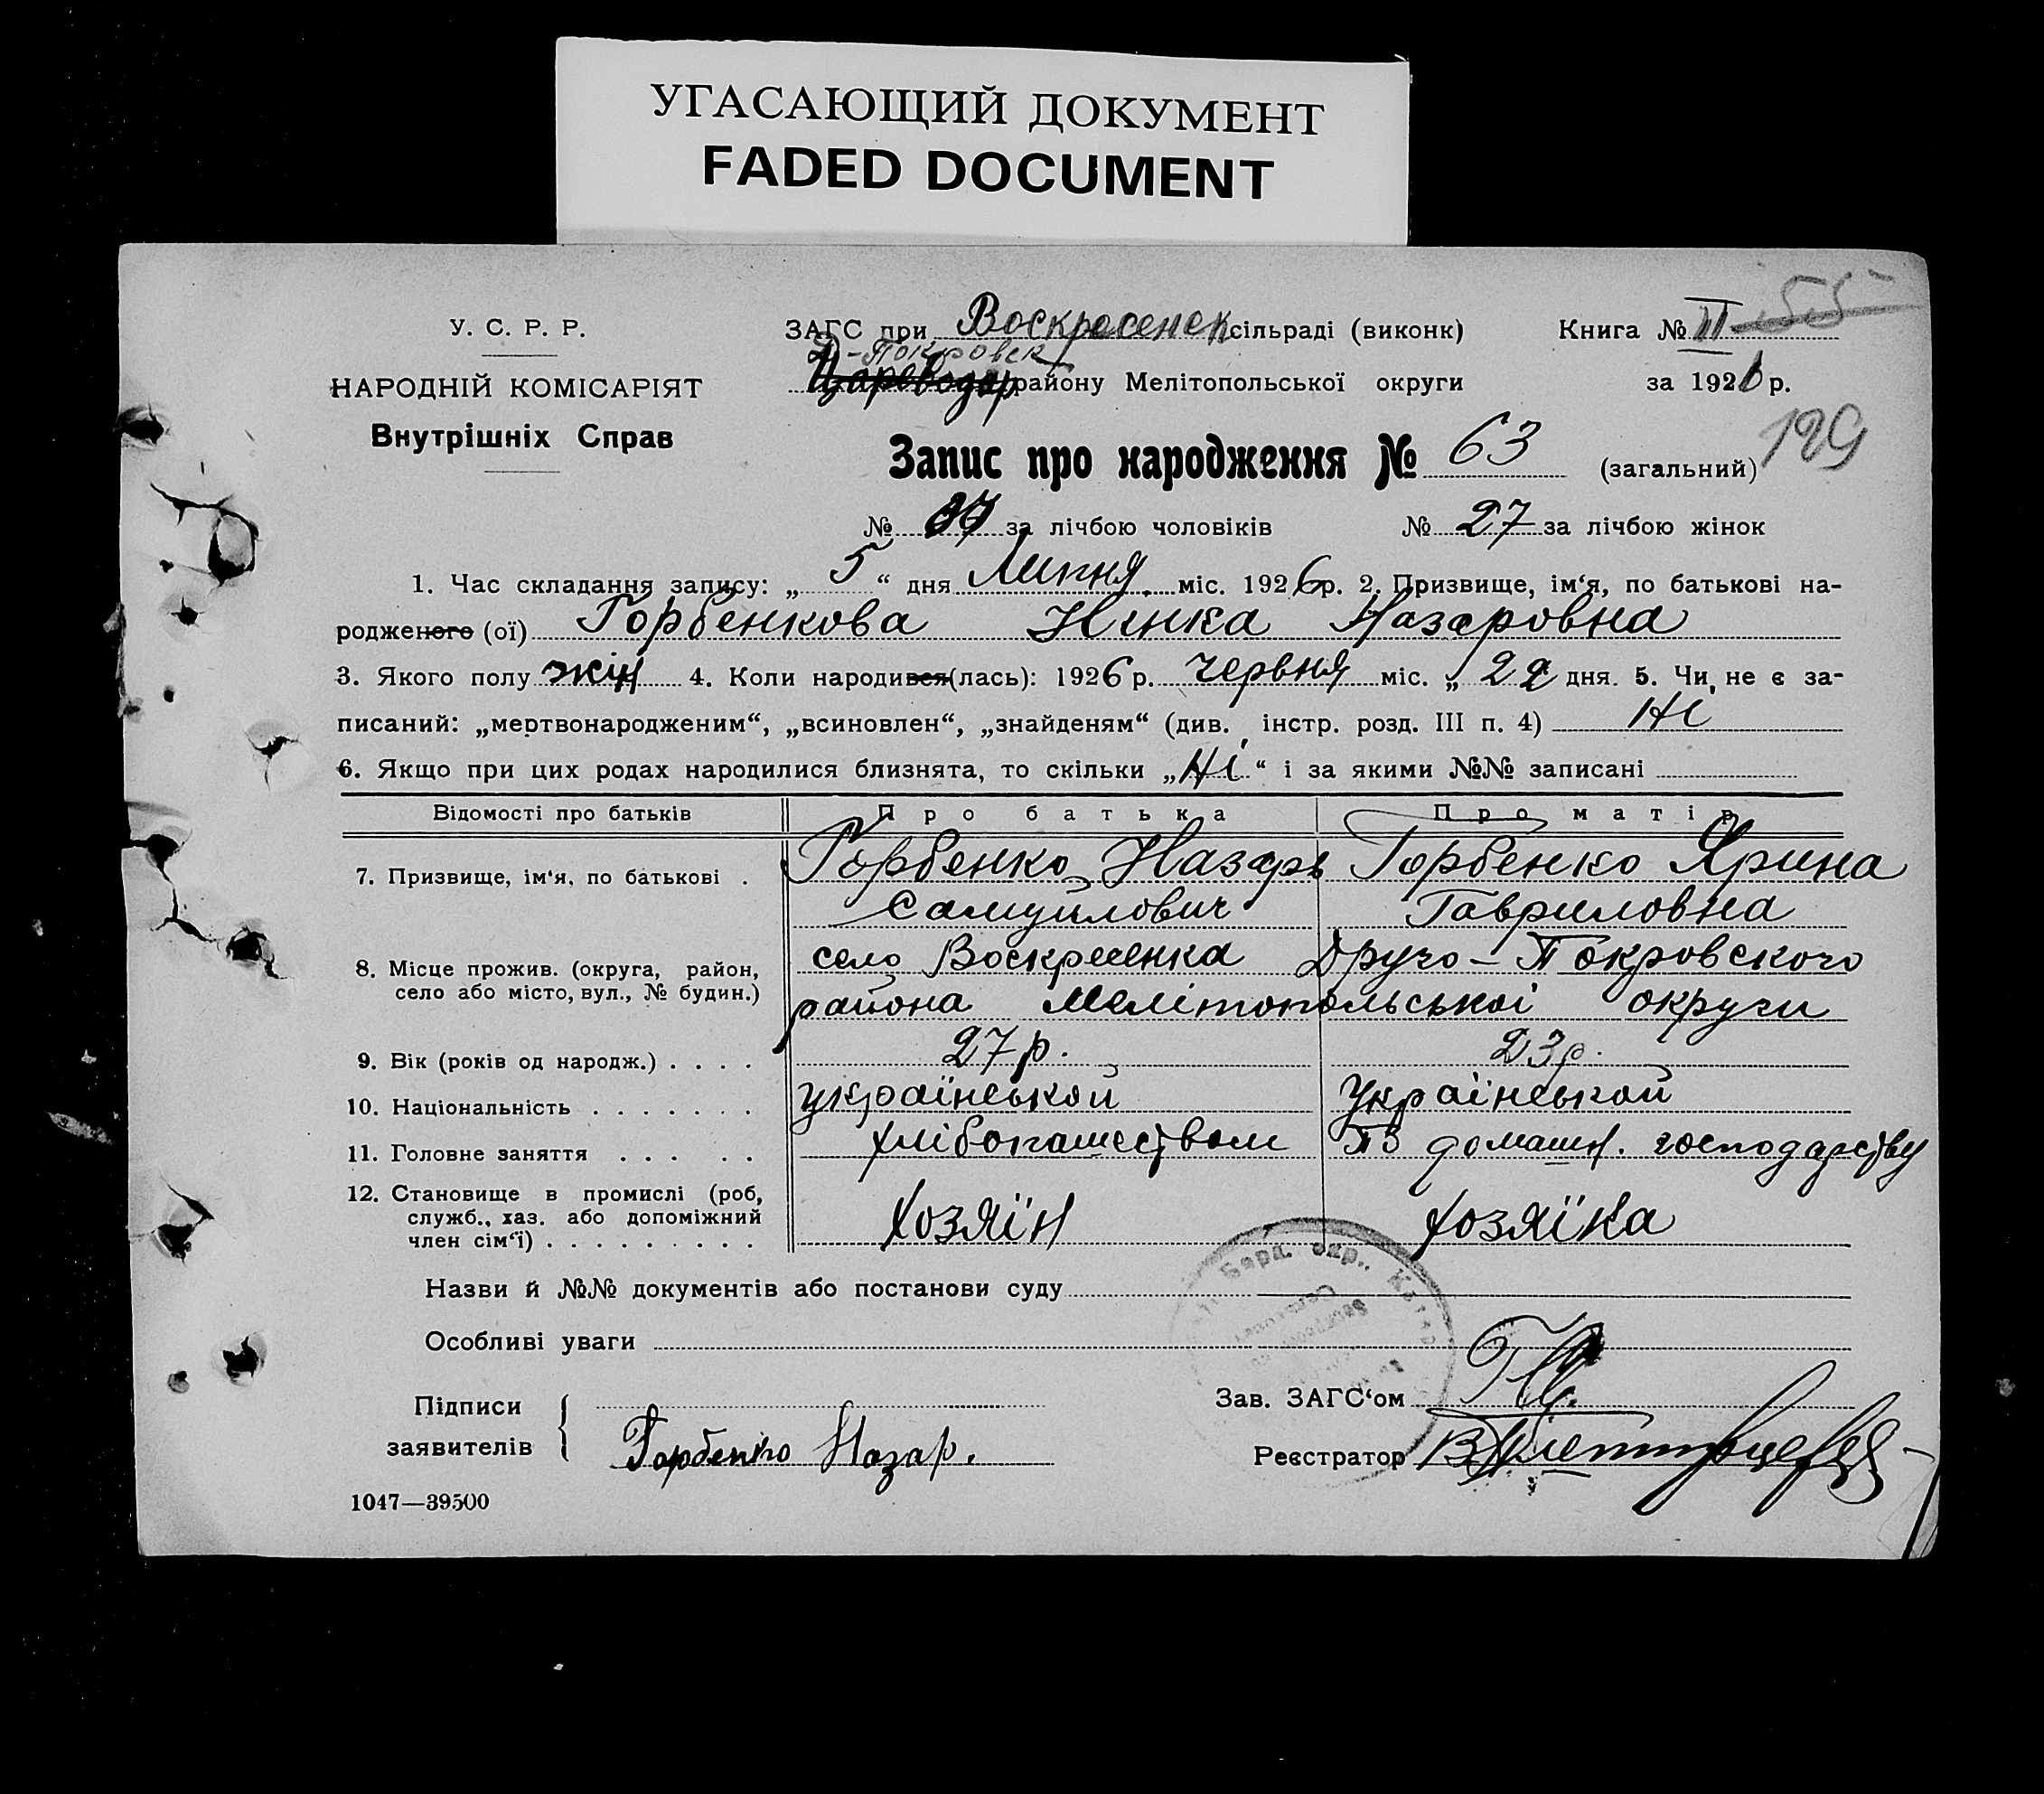 УГАСАЮЩИЙ ДОКУМЕНТ
FADED DOCUMENT
У. С. Р. Р.
НАРОДНІЙ КОМІСАРІЯТ
Внутрішніх Справ
ЗАГС при Воскресенск сільраді (виконк)
Д-Покровск
Цареводар району Мелітопольської округи
Книга № III 55
за 1926 р.
129
Запис про народження № 63 (загальний)
№ 37 за лічбою чоловіків № 27 за лічбою жінок
1. Час складання запису: „ 5 “ дня Липня міс. 1926 р. 2. Призвище, ім‘я, по батькові на-
родженого (ої) Горбенкова Нінка Назаровна
3. Якого полу жін 4. Коли народився(лась): 1926 р. червня міс. „ 22 дня. 5. Чи не є за-
писаний: „мертвонародженим“, „всиновлен“, „знайденям“ (див. інстр. розд. III п. 4) Ні
6. Якщо при цих родах народилися близнята, то скільки „Ні“ і за якими №№ записані
Відомості про батьків Про батька Про матір
7. Призвище, ім‘я, по батькові . Горбенко Назарь Горбенко Ярина
Самуилович Гавриловна
8. Місце прожив. (округа, район, село Воскресенка Друго-Покровского
село або місто, вул., № будин.) района Мелітопольської округи
9. Вік (років од народж.) . . . . 27 р. 23 р.
10. Національність . . . . . . . українськой Українськой
11. Головне заняття . . . . . хлібопашеством По домашн. господарству
12. Становище в промислі (роб,
служб., хаз. або допоміжний
член сім‘ї) . . . . . . . . . Хозяїн Хозяїка
Назви й №№ документів або постанови суду
Особливі уваги
Підписи
заявителів
Горбенко Назар.
Зав. ЗАГС‘ом
Реєстратор
1047—39500